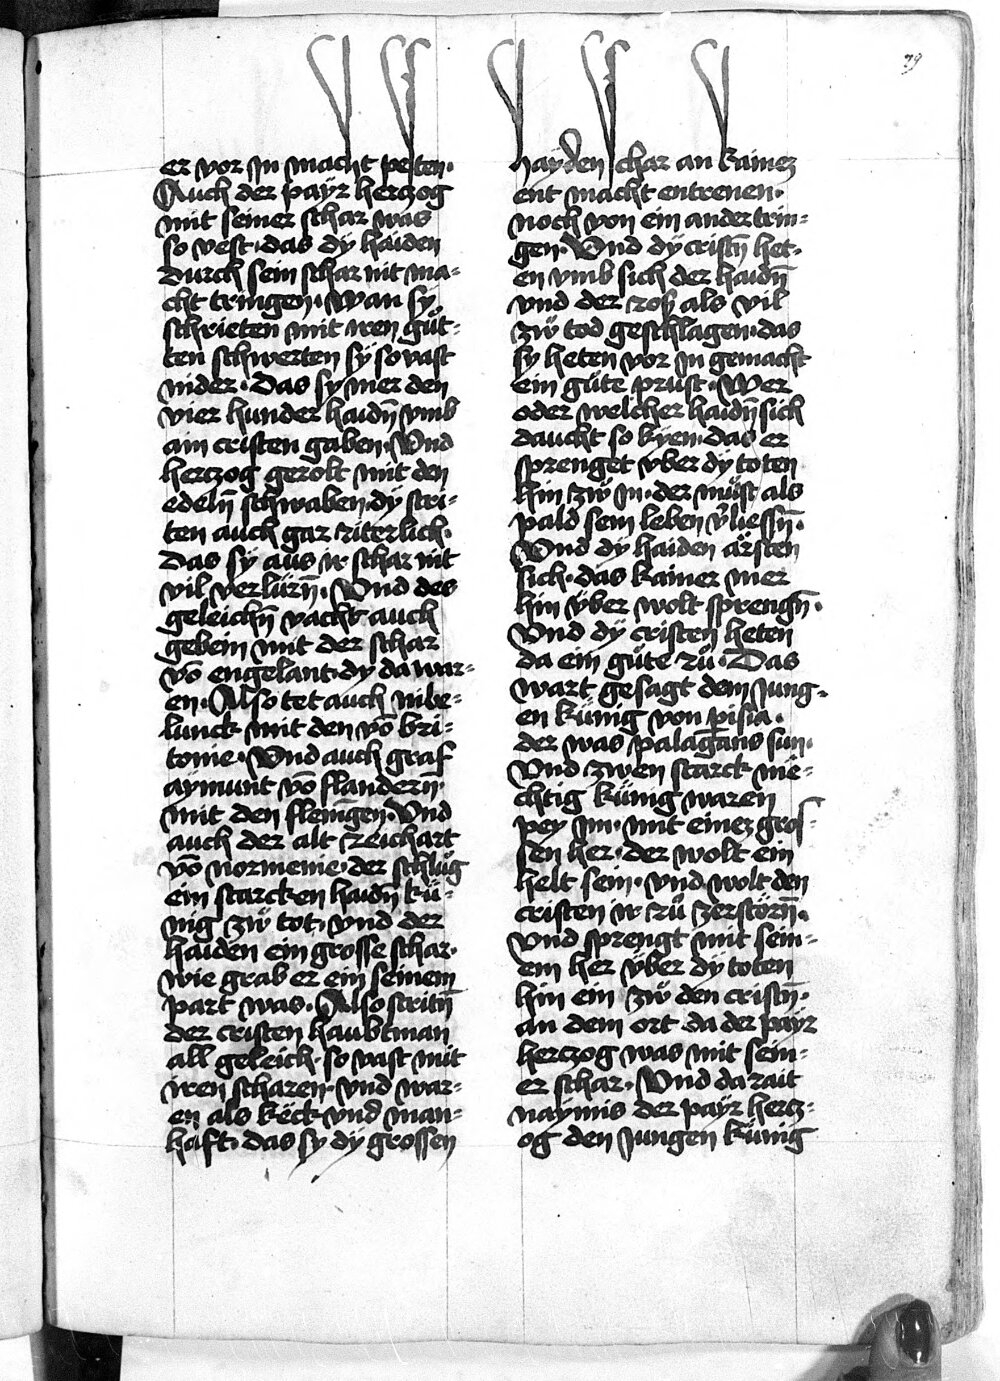 79
er vor In macht peiten·
Auch der payr herczog
mit seiner schar was
so vest· das dÿ haiden
durch sein schar nit ma-
cht tringen· Wan sÿ
schrieten mit iren gůt-
ten schwerten sÿ so vast
nider· Das sy mer den
vier hunder haidn̄ vmb
ain cristen gaben· Vnd
herczog gerolt mit den
edeln̄ schwaben· dÿ stri-
ten auch gar riterlich·
das sÿ aus ir schar nit
vil verlürn̄· Vnd des
geleichn̄ vacht auch
gebein mit der schar
vō engelant· dy da war-
en· Also tet auch nibe-
lunck mit den vō bri-
tonie· Vnd auch graf
aymunt vō flandern̄·
mit den flemīgen· Vnd
auch der alt reichart
vō normenie· der schlůg
ein starcken haidn̄ kü-
nig zů tot· vnd der
haiden ein grosse schar·
wie grab er ein seinem
part was· Also stritn̄
der cristen haubtman
all geleich· so vast mit
iren scharen· vnd war-
en als këck vnd man-
haft· das sy dÿ grossen
hayden schar an kainer
ent macht entrenen·
noch von ein ander trin-
gen· Vnd dÿ cristn̄ het-
en vmb sich der haidn̄
vnd der roß als vil
zů tod geschlagen· das
sy heten vor In gemacht
ein gůte prust· Wer
oder welcher haidn̄ sich
daucht so kyen· das er
sprenget vber dÿ toten
hin zů In· der můst als
pald sein leben v̄liessn̄·
Vnd dÿ haiden ärsten
sich· das kainer mer
hin v̈ber wolt sprengn̄·
Vnd dÿ cristen heten
da ein gůte rů· Das
wart gesagt dem Jung-
en künig von pisia·
der was palagans sun·
Vnd zwen starck më-
chtig künig waren
pey Im· mit einer gros-
sen her· der wolt ein
helt sein· vnd wolt den
cristen ir rů zerstörn̄·
Vnd sprengt mit sein-
em her v̈ber dÿ toten
hin ein zů den cristn̄·
an dem ort da der payr
herczog was mit sein-
er schar· Vnd da rait
naymis der payr hercz-
og den Jungen künig